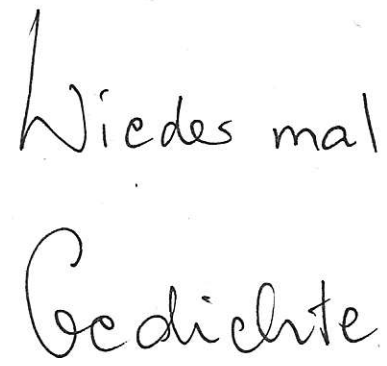 Wieder mal
Gedichte